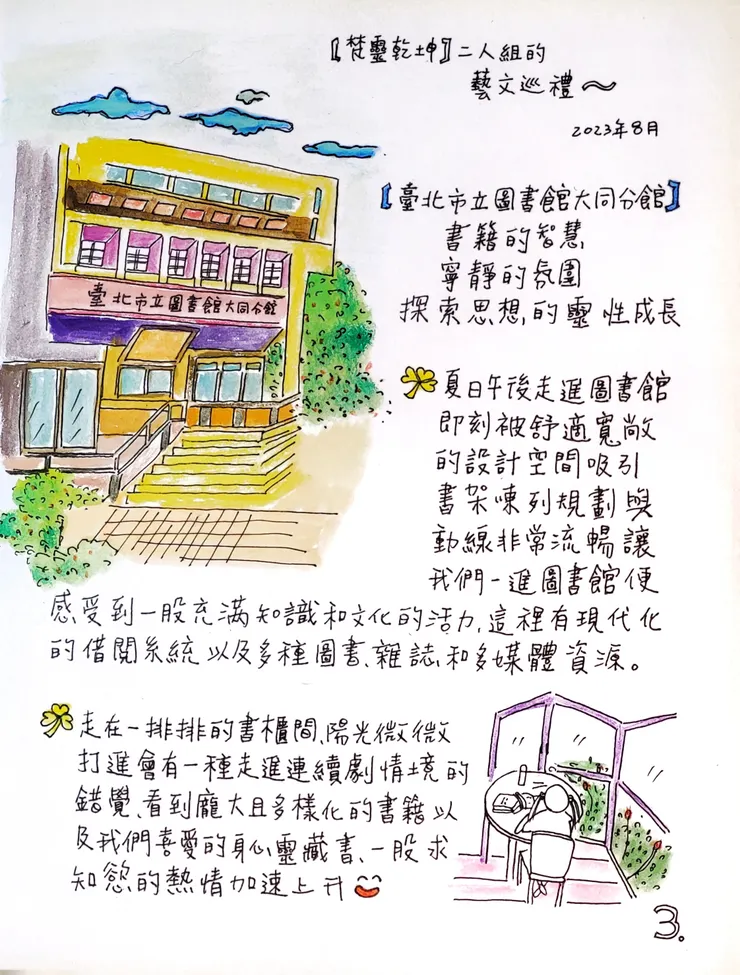 〖梵靈乾坤〗二人組的
藝文巡禮～
2023年8月
【臺北市立圖書館大同分館】
書籍的智慧
寧靜的氛圍
探索思想,的靈性成長
臺北市立圖書館大同分館
夏日午後走進圖書館
即刻被舒適寬敞
的設計空間吸引
書架陳列規劃與
動線非常流暢讓
我們一進圖書館便
感受到一股充滿知識和文化的活力,這裡有現代化
的借閱系統以及多種圖書、雜誌,和多媒體資源。
走在一排排的書櫃間、陽光微微
打進會有一種走進連續劇情境的
錯覺、看到龐大且多樣化的書籍以
及我們喜愛的身心靈藏書、一股求
知慾的熱情加速上升
3.